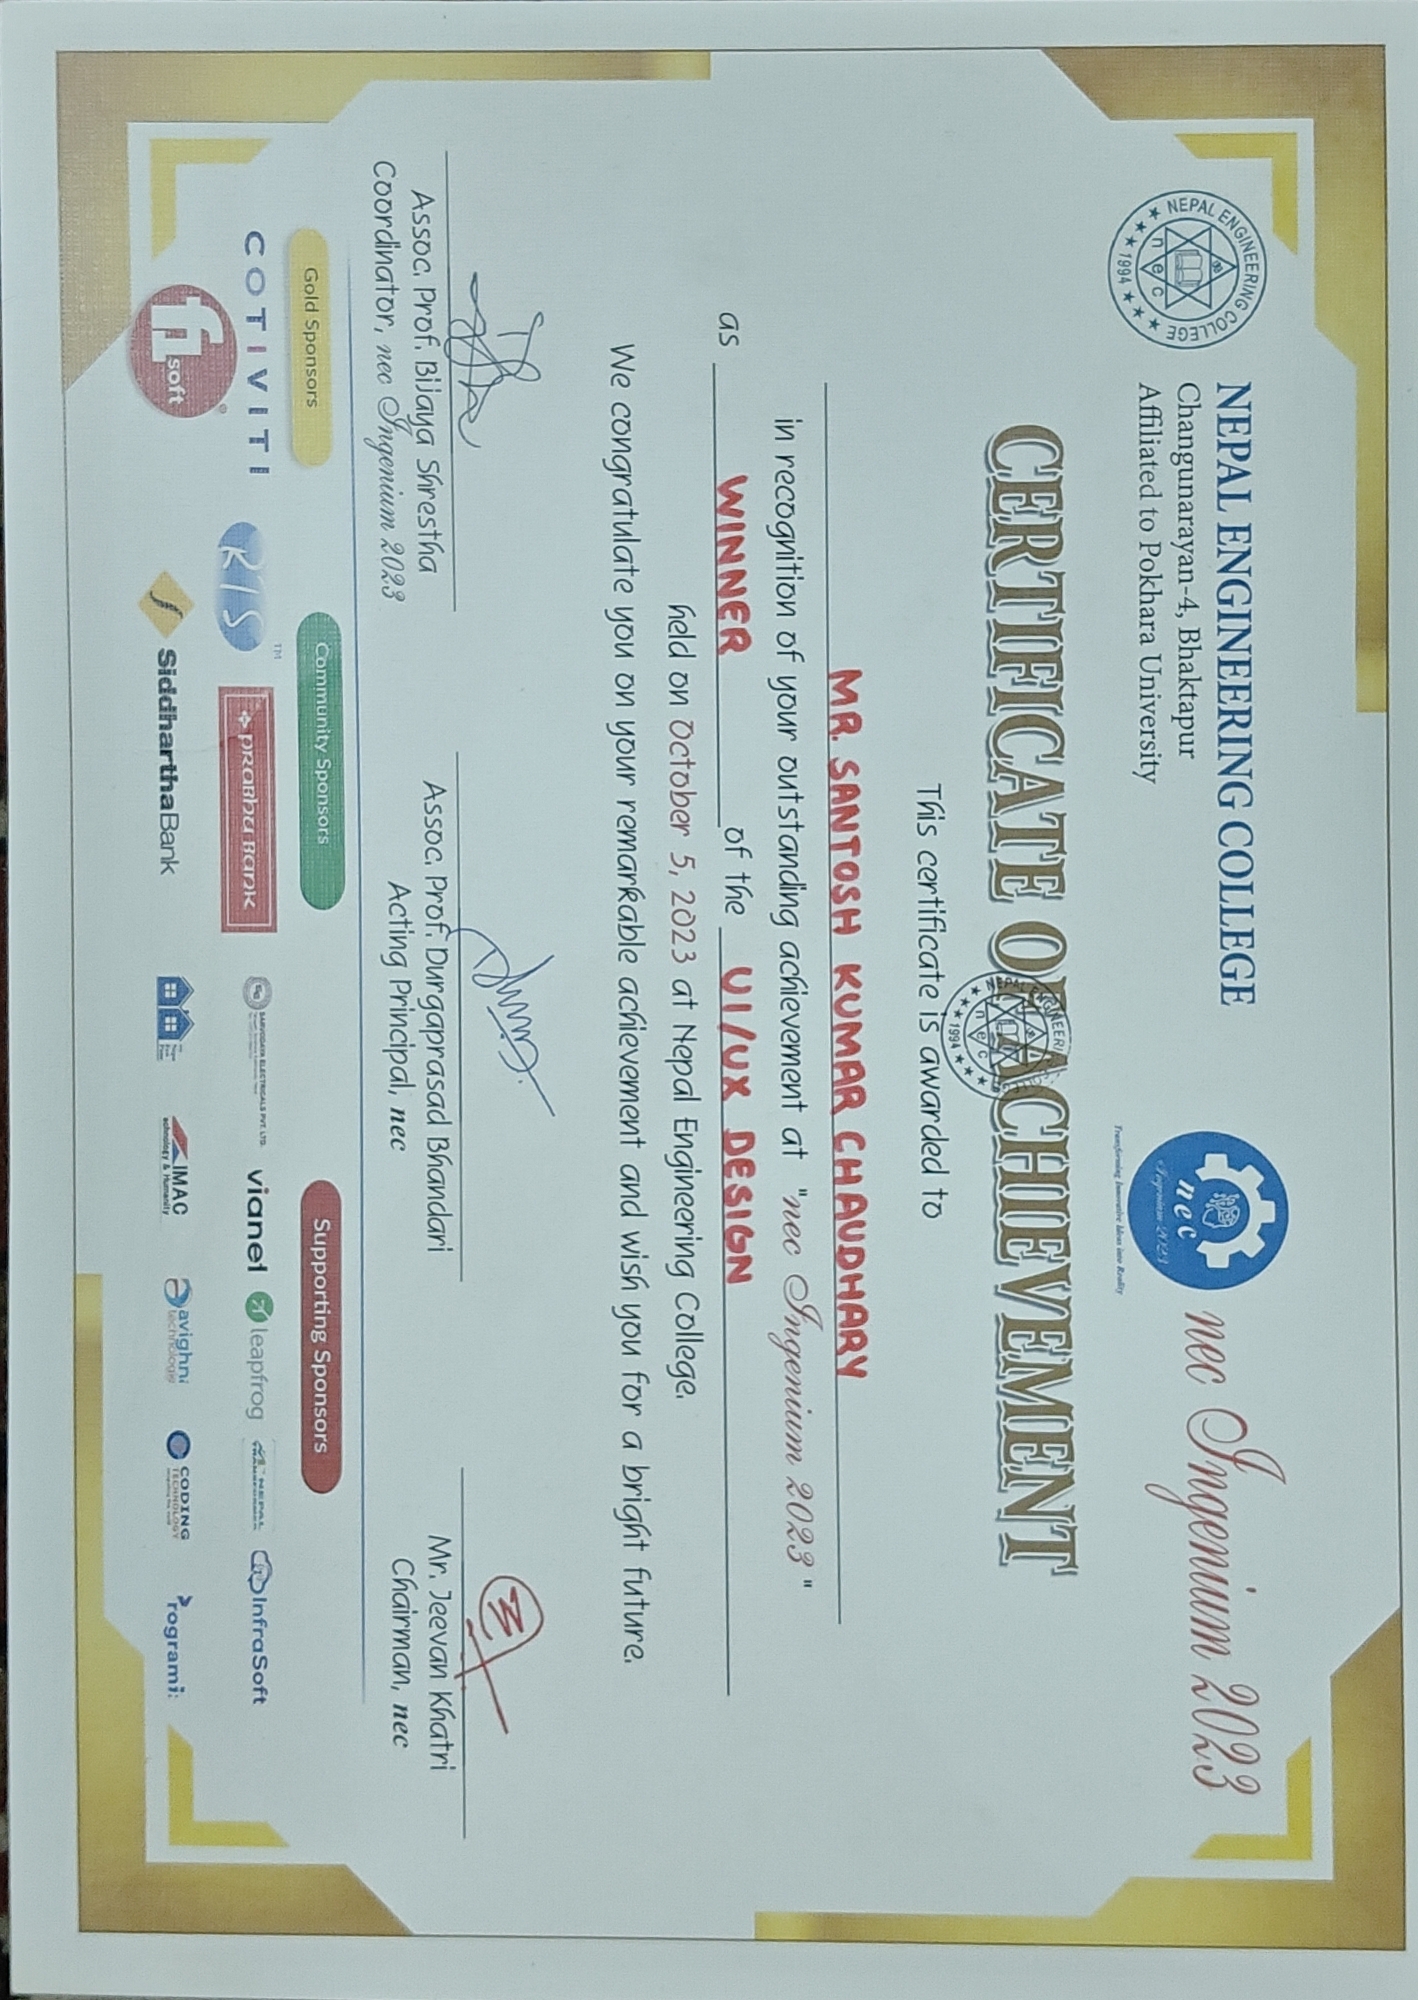 NEPAL ENGINEERING COLLEGE
nec
★★★★ 1994 ★★★★
NEPAL ENGINEERING COLLEGE
Changunarayan-4, Bhaktapur
Affiliated to Pokhara University
nec
Ingenium 2023
Transforming Innovative Ideas into Reality
nec Ingenium 2023
CERTIFICATE OF ACHIEVEMENT
nec
1994
This certificate is awarded to
MR. SANTOSH KUMAR CHAUDHARY
in recognition of your outstanding achievement at "nec Ingenium 2023"
as WINNER of the UI/UX DESIGN
held on October 5, 2023 at Nepal Engineering College.
We congratulate you on your remarkable achievement and wish you for a bright future.
Assoc. Prof. Bijaya Shrestha
Coordinator, nec Ingenium 2023
Assoc. Prof. Durgaprasad Bhandari
Acting Principal, nec
Mr. Jeevan Khatri
Chairman, nec
Gold Sponsors
COTIVITI
fi soft
Community Sponsors
RTS TM
PRABHU BANK
SiddharthaBank
Supporting Sponsors
SARVODAYA ELECTRICALS PVT. LTD.
vianet
leapfrog
NEPAL
TRANSFORMER
InfraSoft
IMAC
echnology & Humanity
avighna
technologie
CODING
TECHNOLOGY